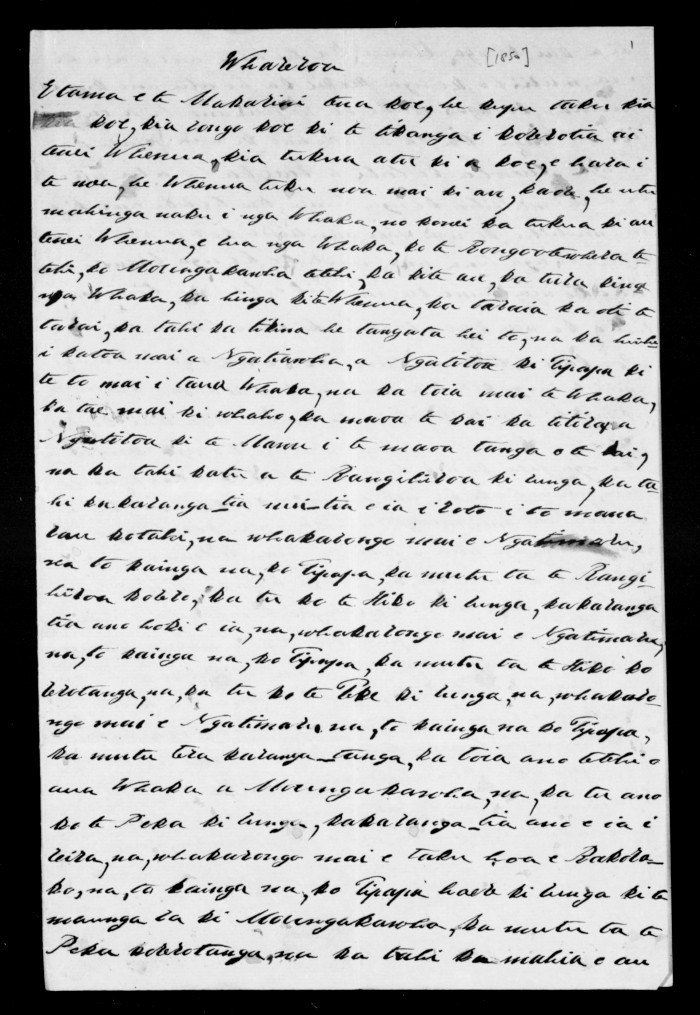 Whareroa
[1850]
1
E tama e te Makarini tena koe, he kupu taku kia
koe, kia rongo koe ki te tikanga i korerotia ai
tenei Whenua, kia tukua atu ki a koe, e hara i
te noa, he Whenua tuku noa mai ki au, kaore, he utu
mahinga naku i nga Whaka, no konei ka tukua ki au
tenei Whenua, e rua nga Whaka, ko te
tehi, ko Moungakawha tetehi, ka kite au, ka tura kina
nga Whaka, ka hinga ki te Whenua, ka taraia ka oti te
tarai, ka tahi ka tikina he tangata hei to, na ka huihu
i katoa mai a Ngatiawha, a Ngatitoa ki Tipapa ki
te to mai i taua Whaka, na ka toia mai te Whaka,
ka tae mai ki waho, ka maoa te kai ka titiro a
Ngatitoa ki te Mana i te maoa tanga o te kai,
na ka tahi katu a te Rangihiroa ki runga, ka ta-
hi ka karanga-tia mai-tia e ia i roto i to mana
rau kotahi, na whakarongo mai e Ngatimaru,
na to kainga na, ko Tipapa, ka mutu ta te Rangi-
hiroa korero, ka tu ko te Hiko ki runga, ka karanga
tia ano hoki e ia, na, whakarongo mai e Ngatimaru,
na, to kainga na, ko Tipapa, ka mutu ta te Hiko ko
rerotanga, na, ka tu ko te Peke ki runga, na, whakaro-
ngo mai e Ngatimaru, na, to kainga na ko Tipapa,
ka mutu tera karanga-tanga, ka toia ano tetehi o
aua Whaka a Moungakawha, na, ka tu ano
ko te Peka ki runga, ka karanga-tia ano e ia i
reira, na, whakarongo mai e taku hoa e Rakora-
ko, na, to kainga na, ko Tipapa haere ki runga ki te
maunga ra ki Moungakawha, ka mutu ta te
Peka korerotanga, na ka tahi ka mahia e au